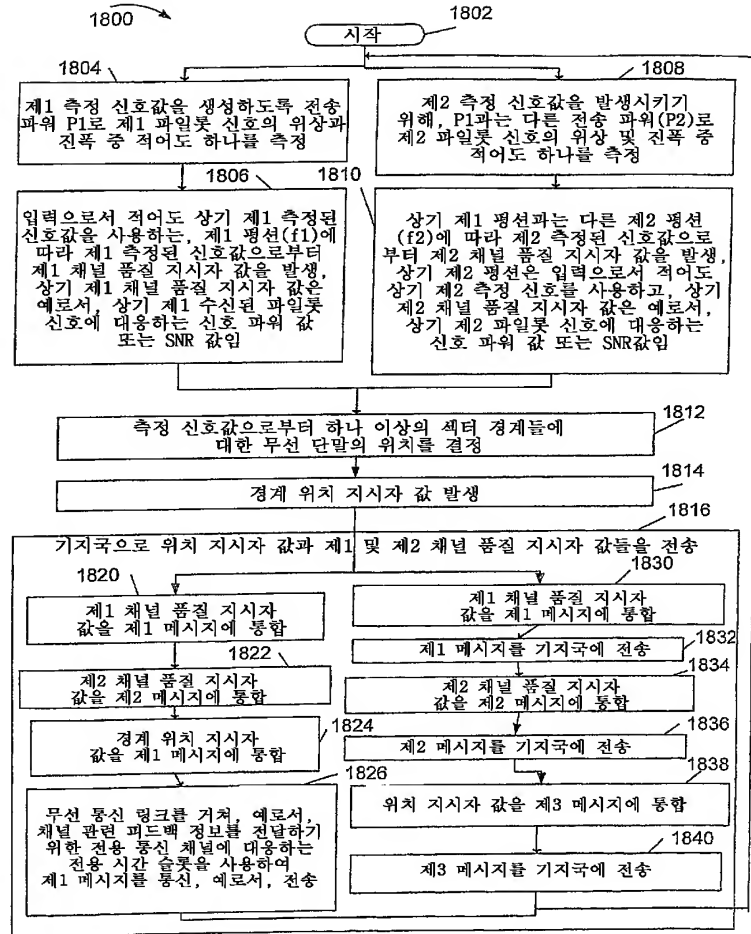 1800
시작
1802
1804
제1 측정 신호값을 생성하도록 전송
파워 P1로 제1 파일롯 신호의 위상과
진폭 중 적어도 하나를 측정
1808
제2 측정 신호값을 발생시키기
위해, P1과는 다른 전송 파워(P2)로
제2 파일롯 신호의 위상 및 진폭 중
적어도 하나를 측정
1806
입력으로서 적어도 상기 제1 측정된
신호값을 사용하는, 제1 펑션(f1)에
따라 제1 측정된 신호값으로부터
제1 채널 품질 지시자 값을 발생,
상기 제1 채널 품질 지시자 값은
예로서, 상기 제1 수신된 파일롯
신호에 대응하는 신호 파워 값
또는 SNR 값임
1810
상기 제1 펑션과는 다른 제2 펑션
(f2)에 따라 제2 측정된 신호값으로
부터 제2 채널 품질 지시자 값을 발생,
상기 제2 펑션은 입력으로서 적어도
상기 제2 측정 신호를 사용하고, 상기
제2 채널 품질 지시자 값은 예로서,
상기 제2 파일롯 신호에 대응하는
신호 파워 값 또는 SNR값임
측정 신호값으로부터 하나 이상의 섹터 경계들에
대한 무선 단말의 위치를 결정
1812
1814
경계 위치 지시자 값 발생
1816
기지국으로 위치 지시자 값과 제1 및 제2 채널 품질 지시자 값들을 전송
1820
제1 채널 품질 지시자
값을 제1 메시지에 통합
1822
제2 채널 품질 지시자
값을 제2 메시지에 통합
경계 위치 지시자
값을 제1 메시지에 통합
1824
1826
무선 통신 링크를 거쳐, 예로서,
채널 관련 피드백 정보를 전달하기
위한 전용 통신 채널에 대응하는
전용 시간 슬롯을 사용하여
제1 메시지를 통신, 예로서, 전송
1830
제1 채널 품질 지시자
값을 제1 메시지에 통합
1832
제1 메시지를 기지국에 전송
1834
제2 채널 품질 지시자
값을 제2 메시지에 통합
1836
제2 메시지를 기지국에 전송
1838
위치 지시자 값을 제3 메시지에 통합
1840
제3 메시지를 기지국에 전송